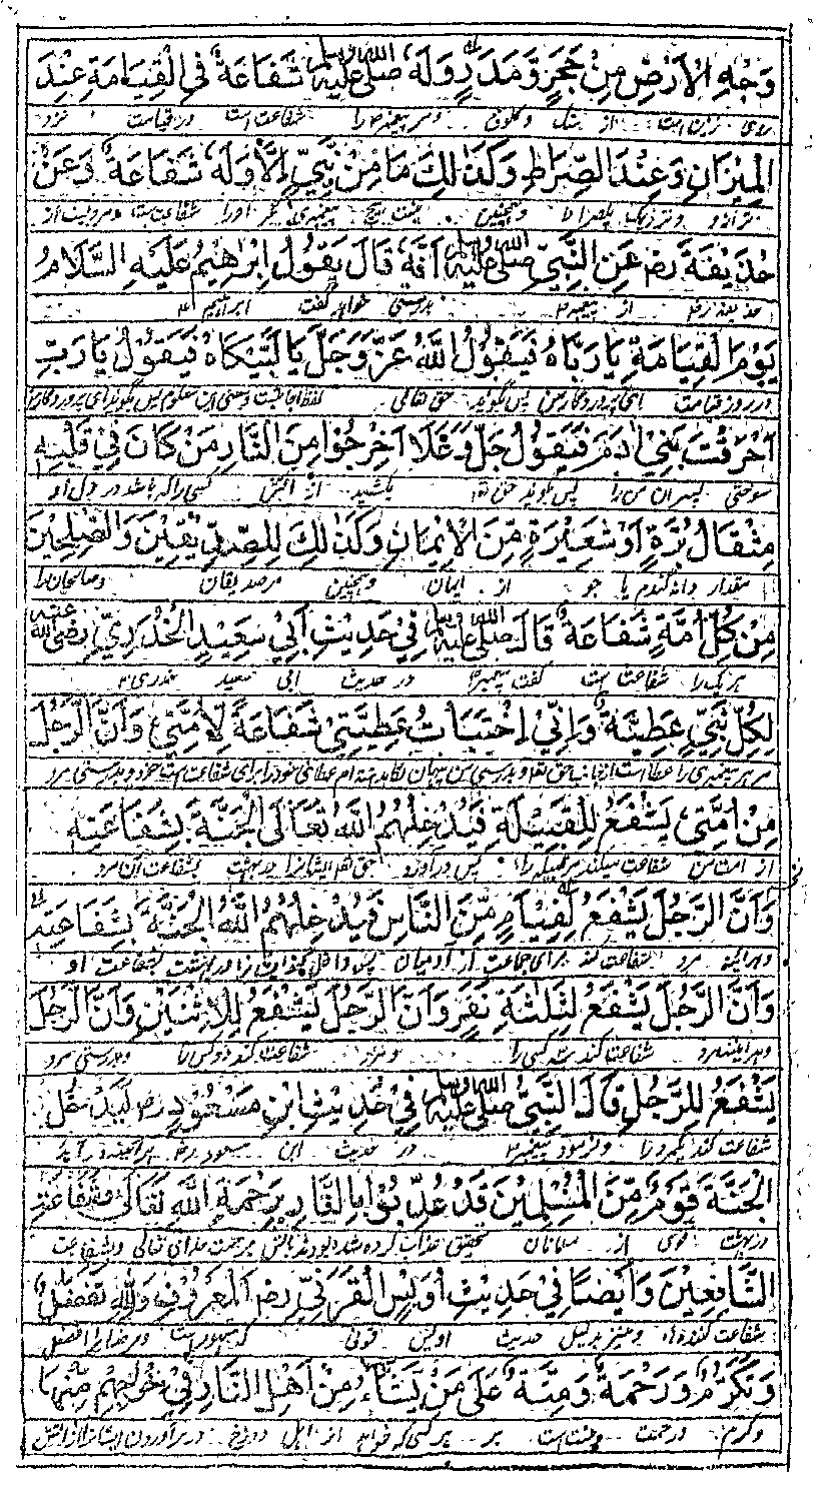 وَجْهِ الْاَرْضِ مِنْ حَجَرٍ وَّمَدَرٍ وَلَهٗ صلى الله عليه وسلم شَفَاعَةٌ فِي الْقِيَامَةِ عِنْدَ
روی زمین است از سنگ و کلوخ و مر پیغمبر را شفاعت است در قیامت نزد
الْمِيْزَانِ وَعِنْدَ الصِّرَاطِ وَكَذٰلِكَ مَا مِنْ نَّبِيٍّ اِلَّا وَلَهٗ شَفَاعَةٌ وَعَنْ
ترازو و نزدیک پلصراط و همچنین نیست هیچ پیغمبری مگر او را شفاعت است و مرویست از
حُذَيْفَةَ رض عَنِ النَّبِيِّ صلى الله عليه وسلم اَنَّهٗ قَالَ يَقُوْلُ اِبْرٰهِيْمُ عَلَيْهِ السَّلَامُ
حذیفه رض از پیغمبر بدرستی خواهد گفت ابراهیم
يَوْمَ الْقِيَامَةِ يَا رَبَّاهُ فَيَقُوْلُ اللّٰهُ عَزَّ وَجَلَّ يَا لَبَّيْكَاهُ فَيَقُوْلُ يَا رَبِّ
در روز قیامت ای پروردگار من پس گوید حق تعالی لفظ اجابت و معنی این معلوم پس گوید ای پروردگار
اَحْرَقْتَ بَنِيْ اٰدَمَ فَيَقُوْلُ جَلَّ وَعَلَا اَخْرِجُوْا مِنَ النَّارِ مَنْ كَانَ فِيْ قَلْبِهٖ
سوختی پسران من را پس گوید حق تع بکشید از آتش کسی را که باشد در دل او
مِثْقَالُ بُرَّةٍ اَوْ شَعِيْرَةٍ مِّنَ الْاِيْمَانِ وَكَذٰلِكَ لِلصِّدِّيْقِيْنَ وَالصّٰلِحِيْنَ
مقدار دانه گندم یا جو از ایمان و همچنین مر صدیقان و صالحان را
مِنْ كُلِّ اُمَّةٍ شَفَاعَةٌ قَالَ صلى الله عليه وسلم فِيْ حَدِيْثِ اَبِيْ سَعِيْدٍ الْخُدْرِيِّ رضى الله عنه
هر یک را شفاعت است گفت پیغمبر در حدیث ابی سعید خدری
لِكُلِّ نَبِيٍّ عَطِيَّةٌ وَاِنِّيْ اخْتَبَأْتُ عَطِيَّتِيْ شَفَاعَةً لِّاُمَّتِيْ وَاَنَّ الرَّجُلَ
مر هر پیغمبری را عطا است از جانب حق تع و بدرستی من پنهان نگاه داشته ام عطای خود را برای شفاعت امت خود و بدرستی مرد
مِنْ اُمَّتِيْ يَشْفَعُ لِلْقَبِيْلَةِ فَيُدْخِلُهُمُ اللّٰهُ تَعَالَى الْجَنَّةَ بِشَفَاعَتِهٖ
از امت من شفاعت میکند مر قبیله را پس در آورد حق تع ایشان را در بهشت بشفاعت آن مرد
وَاَنَّ الرَّجُلَ يَشْفَعُ لِفِيَامٍ مِّنَ النَّاسِ فَيُدْخِلُهُمُ اللّٰهُ الْجَنَّةَ بِشَفَاعَتِهٖ
و هرآینه مرد شفاعت کند برای جماعت از آدمیان پس داخل کند ایشان را در بهشت بشفاعت او
وَاَنَّ الرَّجُلَ يَشْفَعُ لِثَلٰثَةِ نَفَرٍ وَاَنَّ الرَّجُلَ يَشْفَعُ لِلْاِثْنَيْنِ وَاَنَّ الرَّجُلَ
و هرآینه مرد شفاعت کند سه کس را و مرد شفاعت کند دو کس را و بدرستی مرد
يَشْفَعُ لِلرَّجُلِ قَالَ النَّبِيُّ صلى الله عليه وسلم فِيْ حَدِيْثِ ابْنِ مَسْعُوْدٍ رض لَيَدْخُلُ
شفاعت کند یکمرد را و فرمود پیغمبر در حدیث ابن مسعود رض هرآینه در آید
الْجَنَّةَ قَوْمٌ مِّنَ الْمُسْلِمِيْنَ قَدْ عُذِّبُوْا بِالنَّارِ بِرَحْمَةِ اللّٰهِ تَعَالٰى وَشَفَاعَةِ
در بهشت قومی از مسلمانان تحقیق عذاب کرده شده بودند بآتش برحمت خدای تعالی و بشفاعت
الشَّافِعِيْنَ وَاَيْضًا فِيْ حَدِيْثِ اُوَيْسِ الْقَرَنِيِّ رض الْمَعْرُوْفِ وَلِلّٰهِ تَفَضُّلٌ
شفاعت کننده ها و نیز بدلیل حدیث اویس قرنی که مشهور است و مر خدا را فضل
وَتَكَرُّمٌ وَرَحْمَةٌ وَمِنَّةٌ عَلٰى مَنْ يَّشَآءُ مِنْ اَهْلِ النَّارِ فِيْ خُرُوْجِهِمْ مِّنْهَا
و کرم و رحمت و منت است بر هر کسی که خواهد از اهل دوزخ در بر آوردن ایشان را از آتش